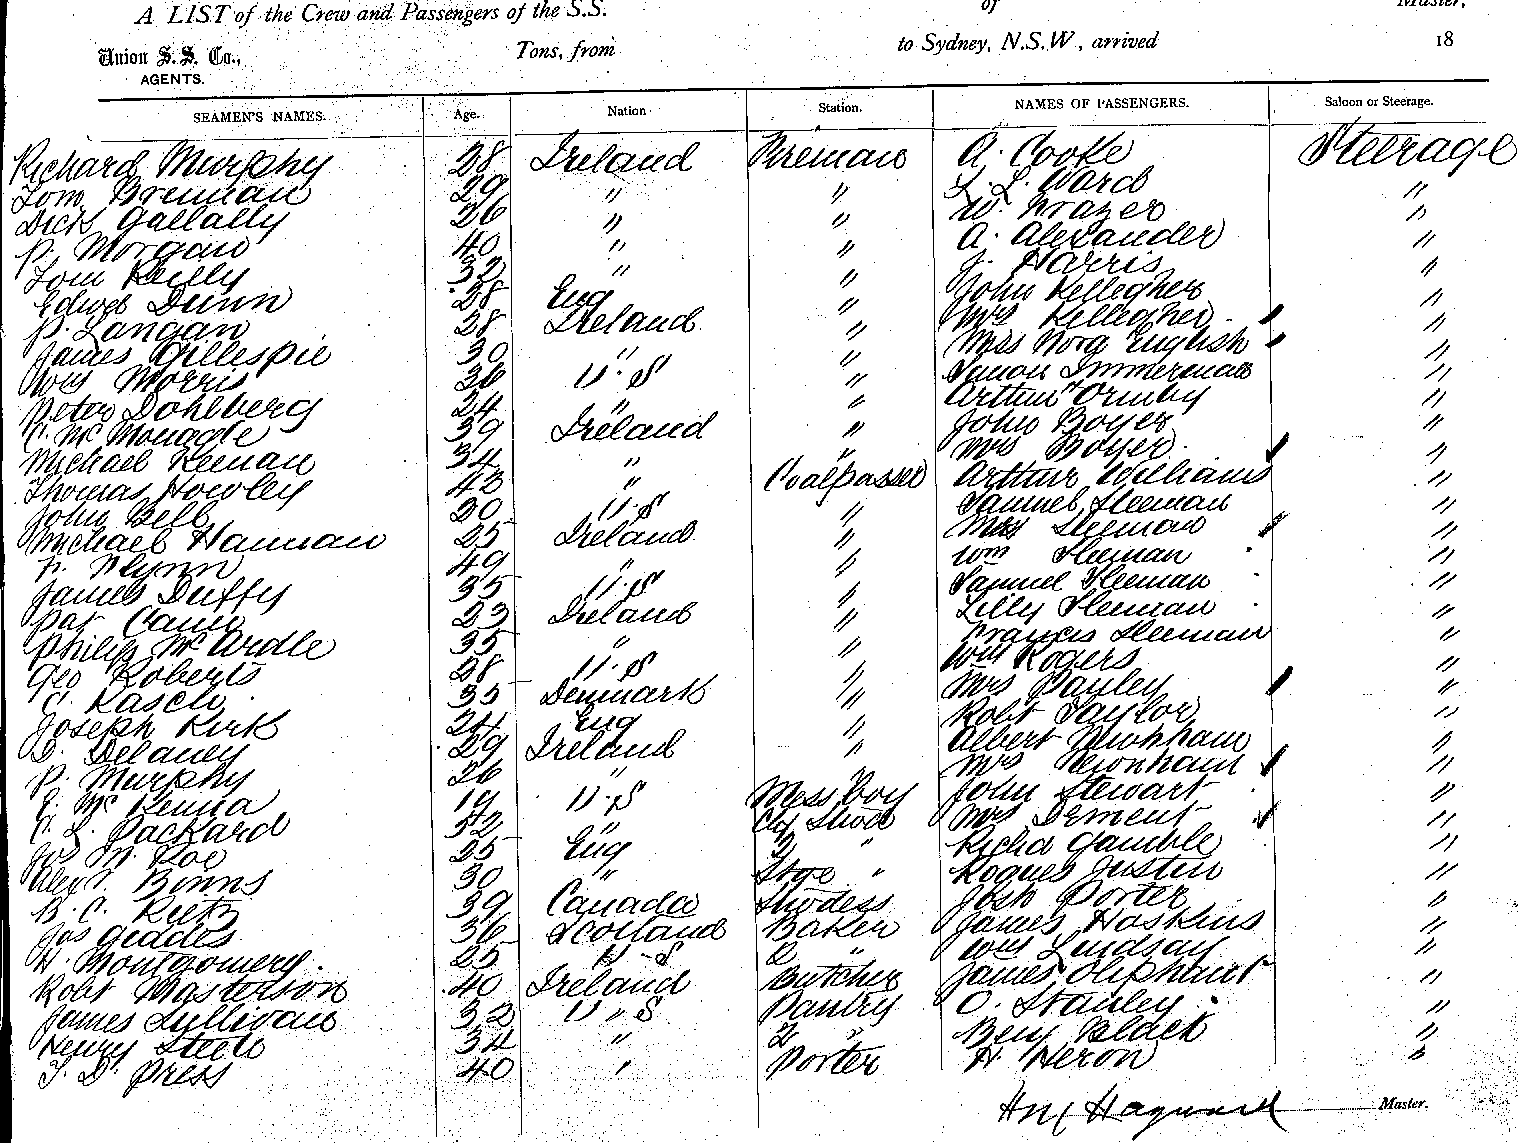 A LIST of the Crew and Passengers of the S.S. of Master,
Union S. S. Co., Tons, from to Sydney, N.S.W, arrived 18
AGENTS.
SEAMEN'S NAMES. Age. Nation Station. NAMES OF PASSENGERS. Saloon or Steerage.
Richard Murphy 28 Ireland Fireman A. Cooke Steerage
Tom Brennan 29 " " L. L. Ward "
Dick Gallally 26 " " W. Frazer "
P. Morgan 40 " " A. Alexander "
Tom Reilly 32 " " J. Harris "
Edwd Dunn 28 Eng " John Kellegher "
P. Langan 28 Ireland " Mrs Kellegher "
James Gillespie 30 " " Miss Nora English "
Wm Morris 36 U.S " Simon Immerman "
Peter Dahlberg 24 " " Arthur Ormby "
39 Ireland " John Boyer "
Michael Keenan 34 " " Mrs Boyer "
Thomas Howley 42 " Coalpasser Arthur Williams "
John Bell 20 U.S " Samuel Sleeman "
Michael Hannan 25 Ireland " Mrs Sleeman "
P. Flynn 49 " " Wm Sleeman "
James Duffy 35 U.S " Samuel Sleeman "
Pat 23 Ireland " Lilly Sleeman "
Philip McArdle 35 " " Francis Sleeman "
Geo Roberts 28 U.S " Wm Rogers "
C. Rasch 35 Denmark " Mrs Pauley "
Joseph Kirk 24 Eng " Robt Taylor "
D. Delaney 29 Ireland " Albert Newnham "
P. Murphy 26 " Mrs Newnham "
McKenna 19 U.S Mess boy John Stewart "
C. L. Packard 52 " Mrs Dement "
25 Eng 2 " Richd Gamble "
Alex. Binns 30 " Stge " Roques Justin "
B. C. Rietz 39 Canada Stwdess Josh Porter "
Jas Geddes 36 Scotland Baker James Hoskins "
H. Montgomery. 25 U-S 2 " Wm Lindsay "
Robt Masterson 40 Ireland Butcher James Oliphant "
James Sullivan 32 U.S Pantry O. Stanley "
Henry Steele 34 " 2 " Benj Black "
T. D. Press 40 " Porter H. Heron "
Hayward Master.